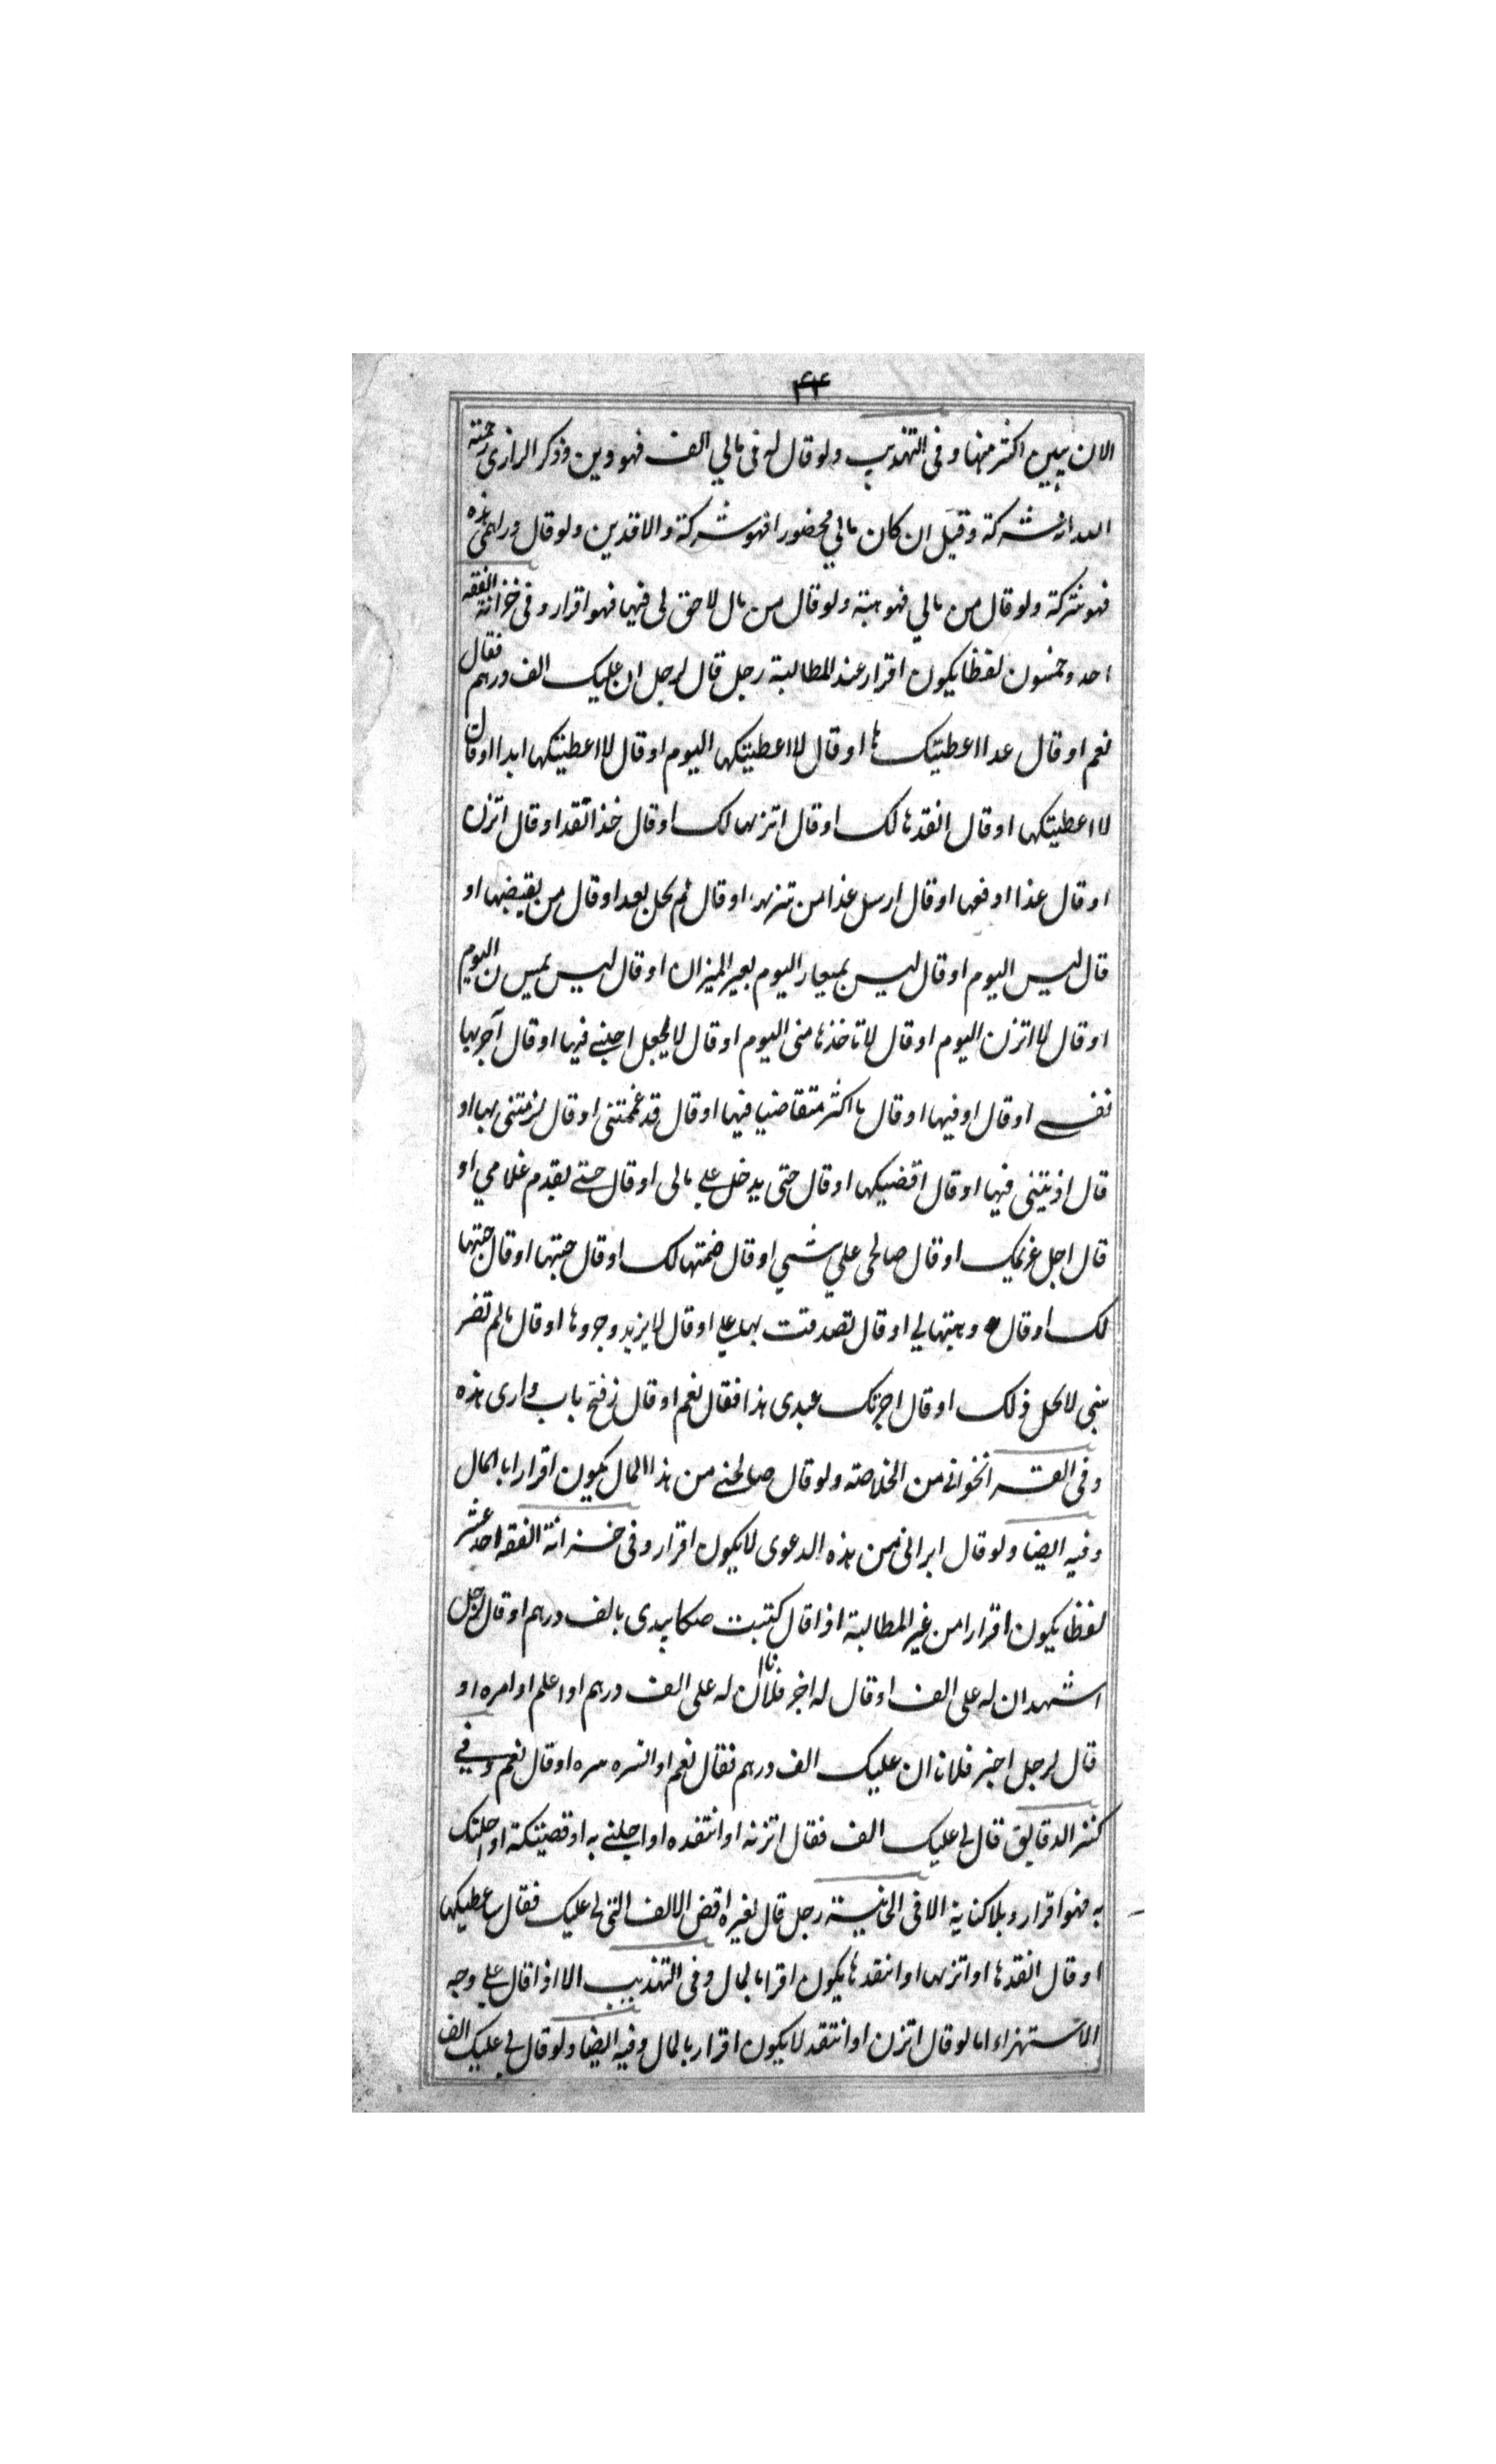 ۴۴
الا ان يبين اكثر منها وفى التهذيب ولو قال له فى مالي الف فهو دين وذكر الرازى رحمة
الله انه شركة وقيل ان كان مالي محضورا فهو شركة والا فدين ولو قال دراهمى هذه
فهو شركة ولو قال من مالي فهو هبة ولو قال من مال لا حق لى فيها فهو اقرار وفى خزانة الفقه
احد وخمسون لفظا يكون اقرار عند المطالبة رجل قال لرجل ان عليك الف درهم فقال
نعم او قال عدا اعطيتك ها او قال لا اعطيتكها اليوم او قال لا اعطيتكها ابدا او قال
لا اعطيتكها او قال انقدها لك او قال اتزنها لك او قال خذ انقد او قال اتزن
او قال غذا ادفعها او قال ارسل غدا من تزنها او قال لم يحل بعد او قال من يقبضها او
قال ليس اليوم او قال ليس بمعيار اليوم بعير الميزان او قال ليس بميس ن اليوم
او قال لا اتزن اليوم او قال لا تاخذها منى اليوم او قال لا يحل اجلنے فيها او قال آخر بها
نفسے او قال اوفيها او قال ما اكثر متقاضيا فيها او قال قد غممتنى او قال لزمتنى بها او
قال اذيتنى فيها او قال اقضيكها او قال حتى يدخل على مالى او قال حتے يقدم غلامي او
قال اجل غريمك او قال صالحى علي شي او قال ضمنتها لك او قال حبتها او قال حبتها
لك او قال وهبتها لي او قال تصدقت بها على او قال لا يزيد وجودها او قال مالم تضر
بنى لا يحل ذلك او قال اجرتك عبدى هذا فقال نعم او قال زفتح باب دارى هذه
وفى القراخوانى من الخلاصة ولو قال صالحنے من هذا المال يكون اقرارا بالمال
وفيه ايضا ولو قال ابرائى من هذه الدعوى لا يكون اقرار وفى خزانة الفقه احد عشر
لفظا يكون اقرارا من غير المطالبة اذا قال كتبت صكا بيدى بالف درهم او قال لرجل
اشهد ان له على الف او قال له اخبر فلانا ان له على الف درهم او اعلم او امره او
قال لرجل اخبر فلانا ان عليك الف درهم فقال نعم او السره سره او قال نعم وفي
كنز الدقايق قال لى عليك الف فقال اتزنه او انتقده او اجلنے به او قضيتكه او احلتك
به فهو اقرار وبلا كناية لا فى الخانية رجل قال لغيره اقض الالف التى لى عليك فقال ساعطيكها
او قال انقدها او اتزنها او انتقدها يكون اقرا بالمال وفى التهذيب الا اذا قال على وجه
الاستهزاء اما لو قال اتزن او انتقد لا يكون اقرار بالمال وفيه ايضا ولو قال لى عليك الف